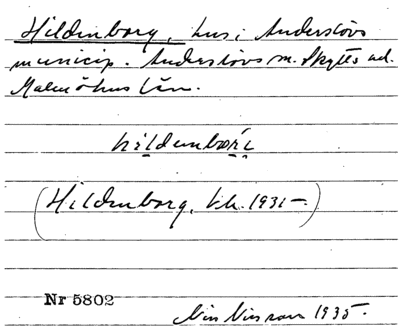 Hildenborg, hus i Anderslövs
municip. Anderslövs sn. Skytts hd.
Malmöhus län.
(Hildenborg, kh. 1931–)
Nr 5802
Nils Nilsson 1935.